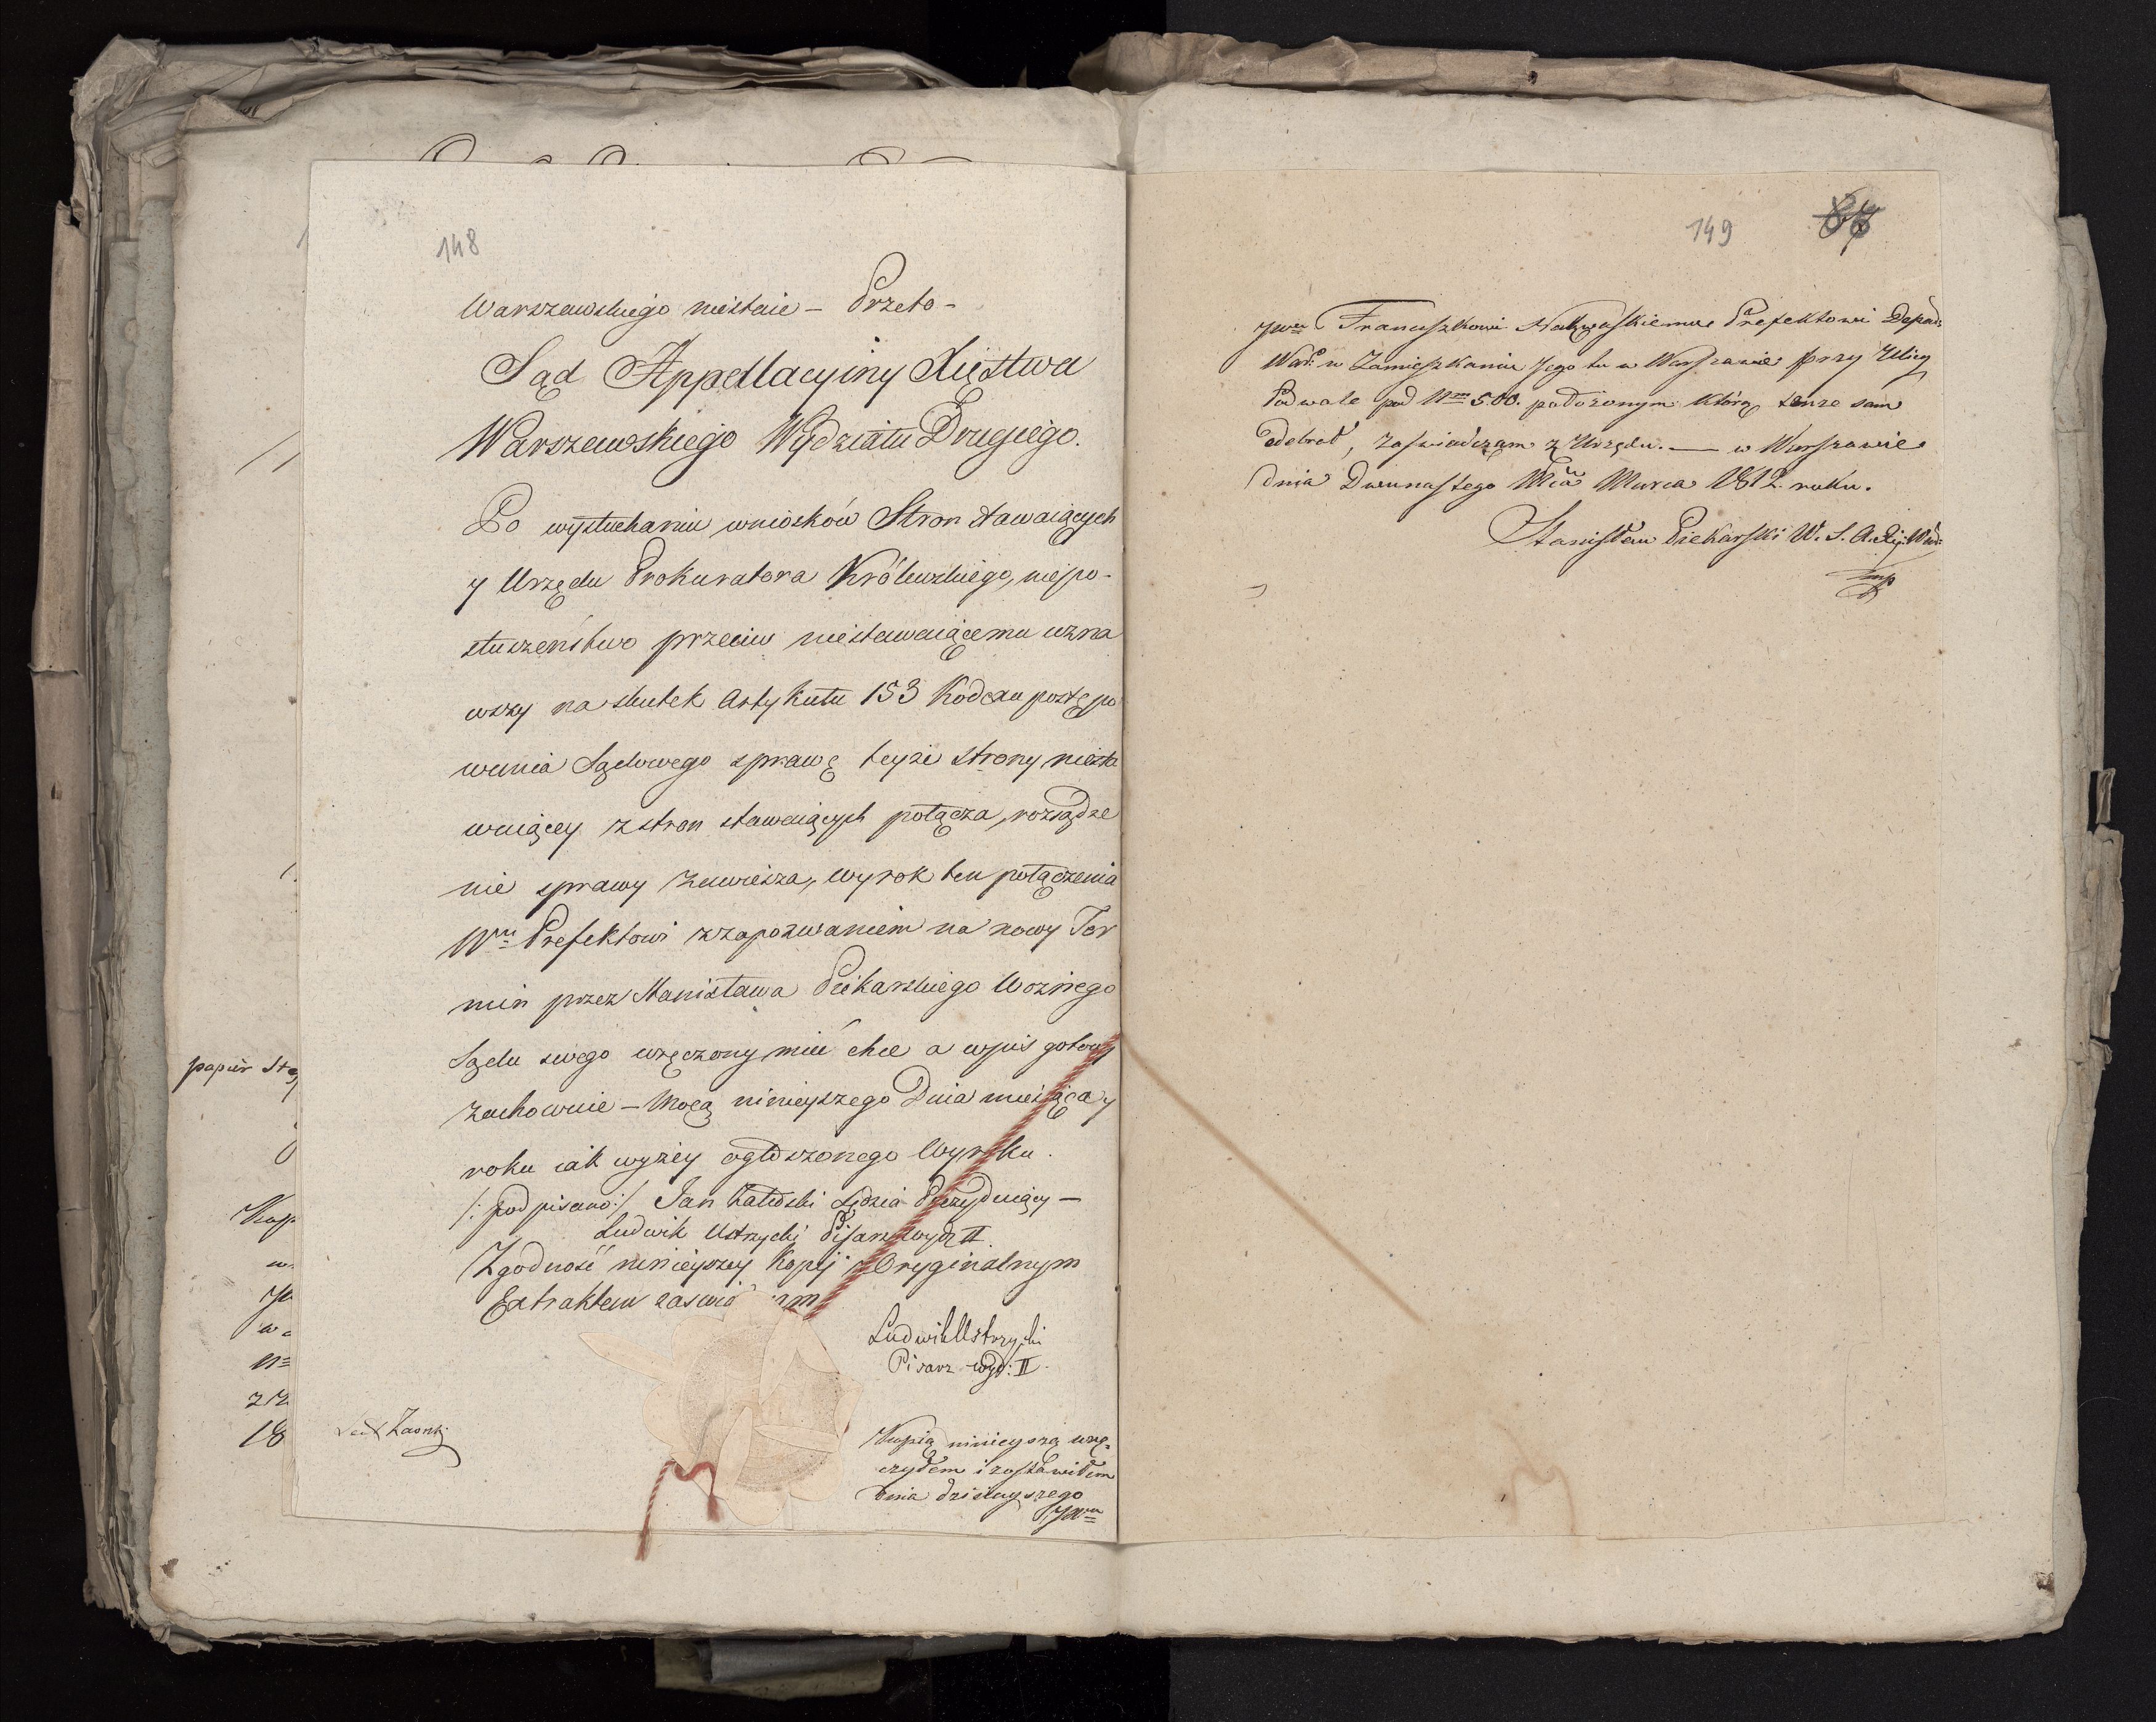 148
Warszawskiego niestaie – Przeto –
Sąd Appellacyiny Xięstwa
Warszawskiego Wydziału Drugiego.
Po wysłuchaniu wniosków Stron stawaiących
y Urzędu Prokuratora Królewskiego, niepo-
słuszeństwo przeciw niestawaiącemu uzna
wszy na skutek Artykułu 153 Kodexu postępo
wania Sądowego sprawę teyże strony niesta
waiącey z stron stawaiących połącza, rozsądze
nie sprawy zawiesza, wyrok ten połączenia
Wmu Prefektowi z zapozwaniem na nowy Ter
min przez Stanisława Piekarskiego Woznego
Sądu swego wręczony mieć chce a wpis gotowy
zachowuie – Mocą ninieyszego Dnia miesiąca y
roku iak wyżey ogłoszonego Wyroku.
/: podpisano :/ Jan Kaleński Sędzia Prezyduiący –
Ludwik Ustrzycki Pisarz Wyd II
Zgodność ninieyszey Kopij z Oryginalnym
Extraktem zaświadczam
Ludwik Ustrzycki
Pisarz wyd: II.
Kopią ninieyszą wrę-
czyłem i zostawiłem
dnia dzisieyszego
JWmu
papier
18
149
JWmu Franciszkowi Nakwaskiemu Prefektowi Depart:
Wars: w Zamieszkaniu Jego tu w Warszawie przy Ulicy
Podwale pod Nrem 500. położonym którą tenże sam
odebrał, zaświadczam z Urzędu. — w Warszawie
dnia Dwunastego Mca Marca 1812. roku.
Stanisław Piekarski W. S. A. Xię: War:
mp